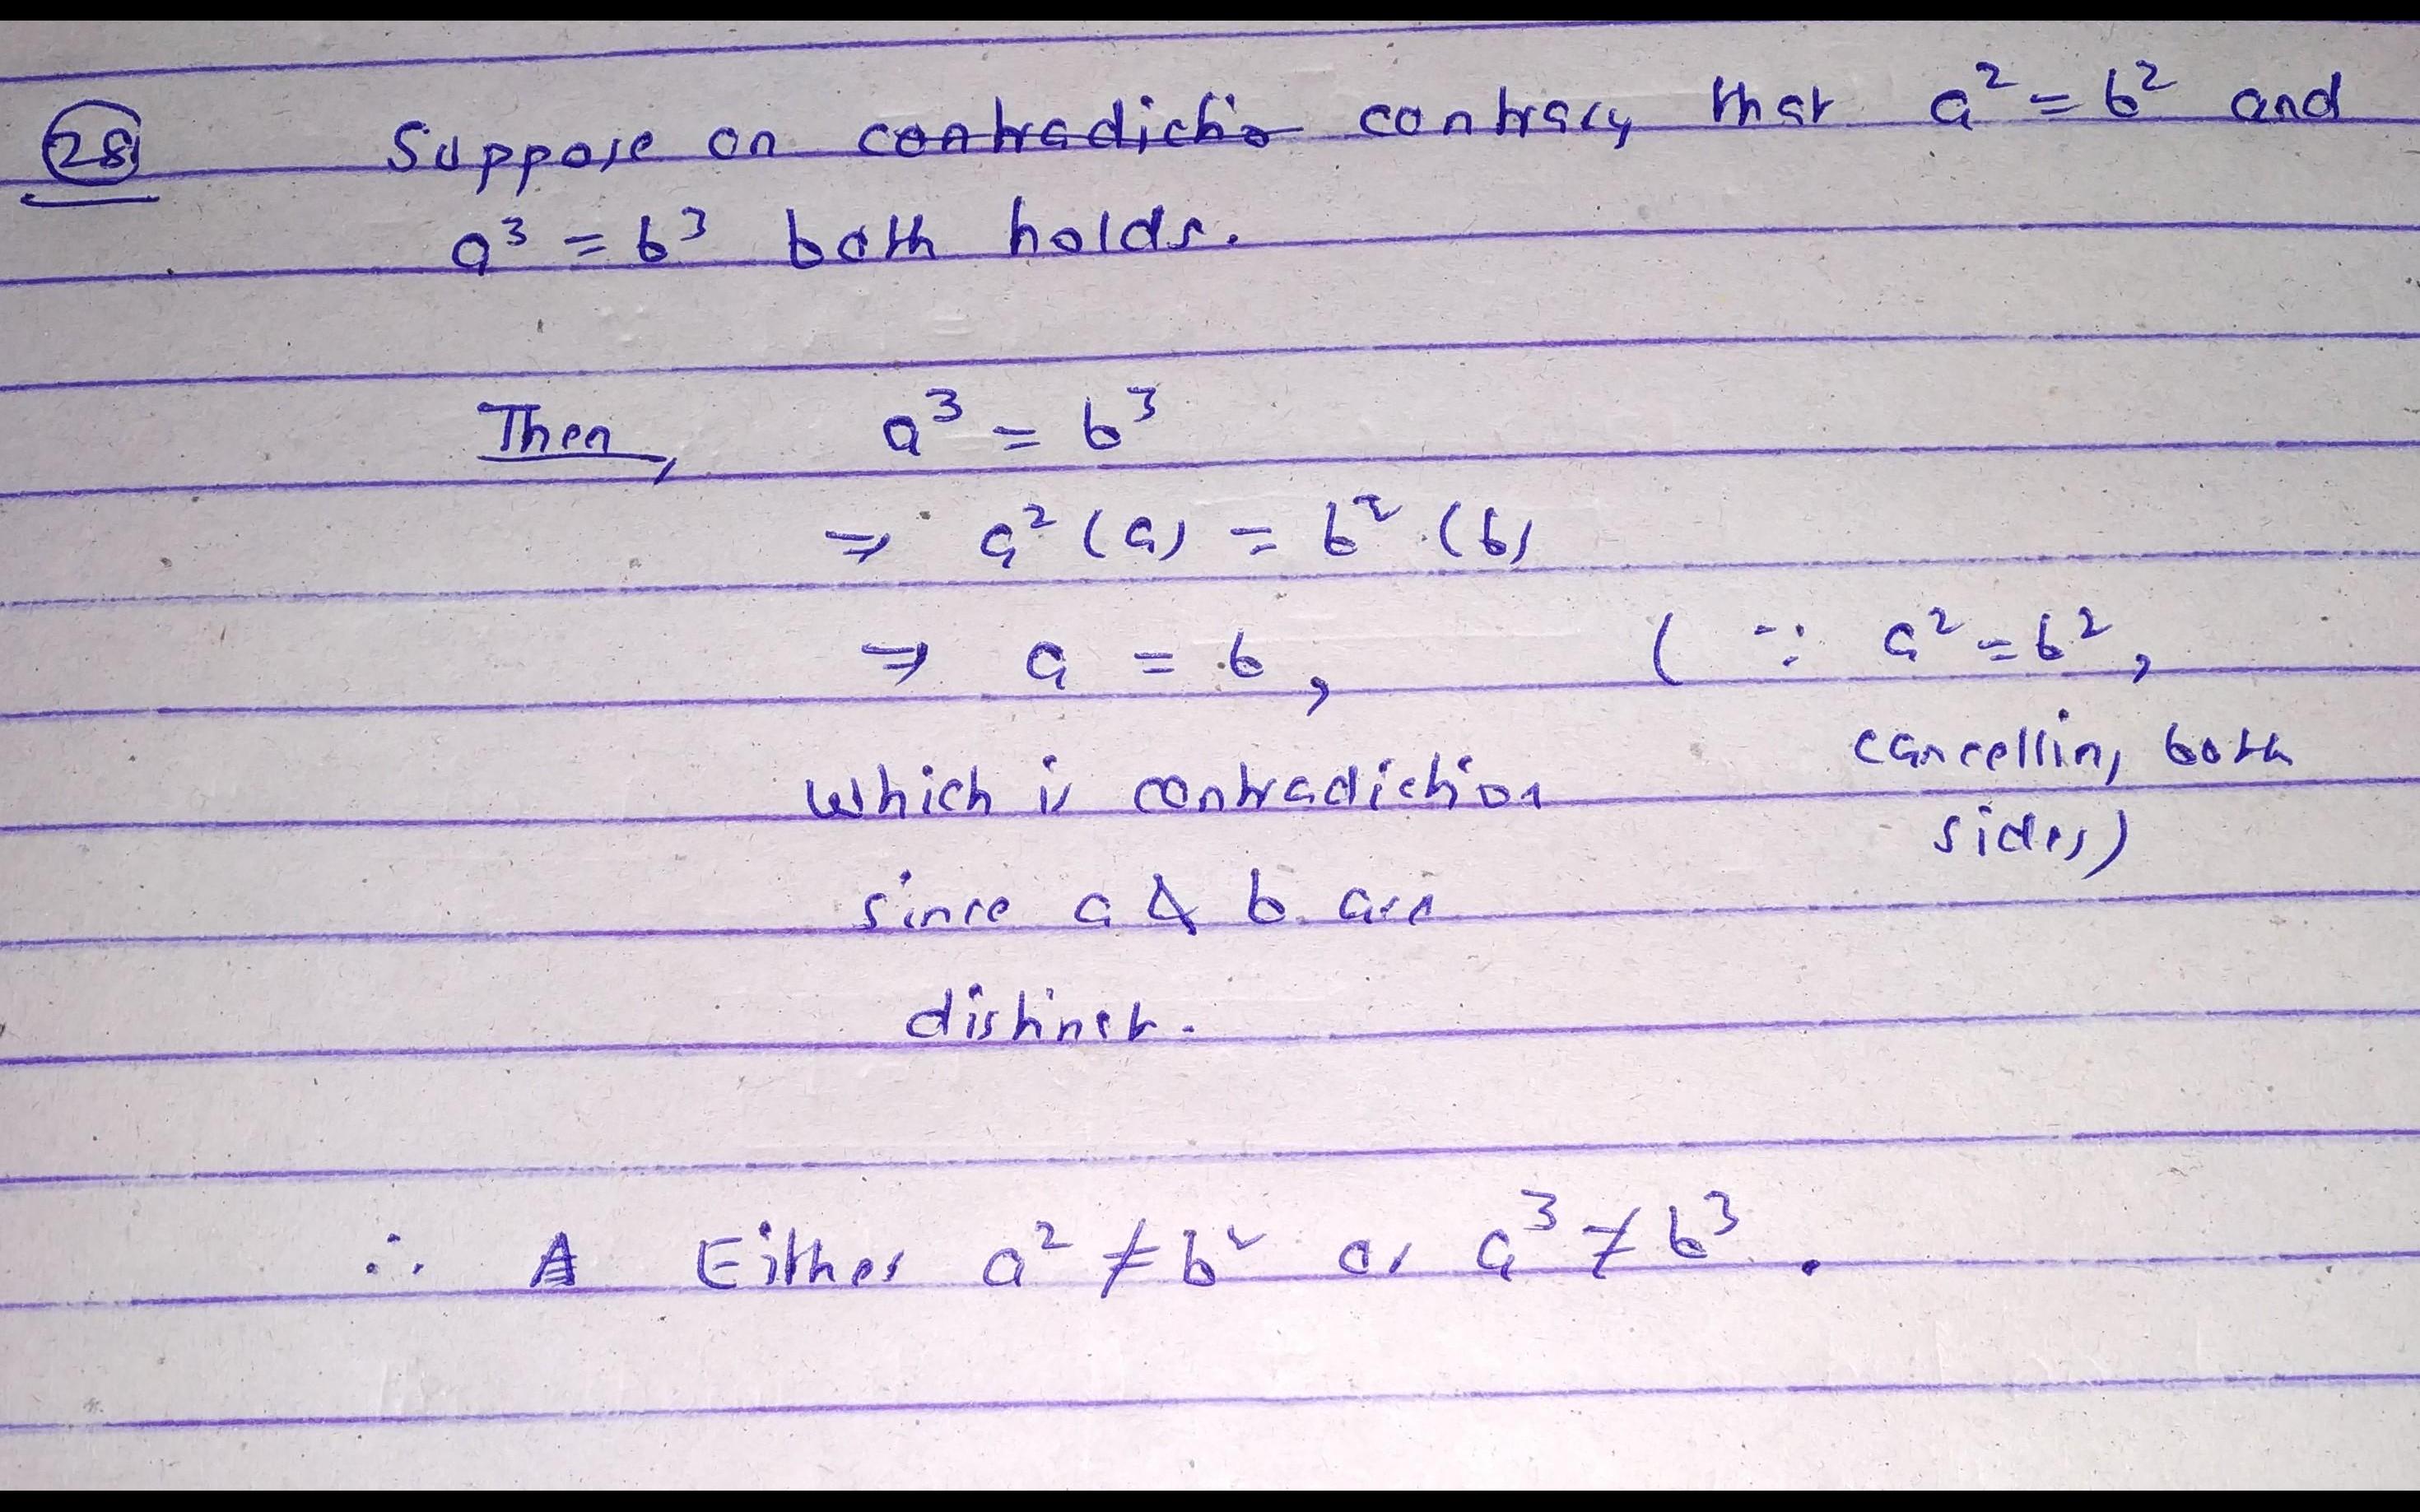 28 Suppose on contradictio contrary that a² = b² and
a³ = b³ both holds.
Then, a³ = b³
⇒ a² (a) = b² (b)
⇒ a = b, (∵ a² = b²,
cancelling both
sides)
which is contradiction
since a & b are
distinct.
∴ A Either a² ≠ b² or a³ ≠ b³.